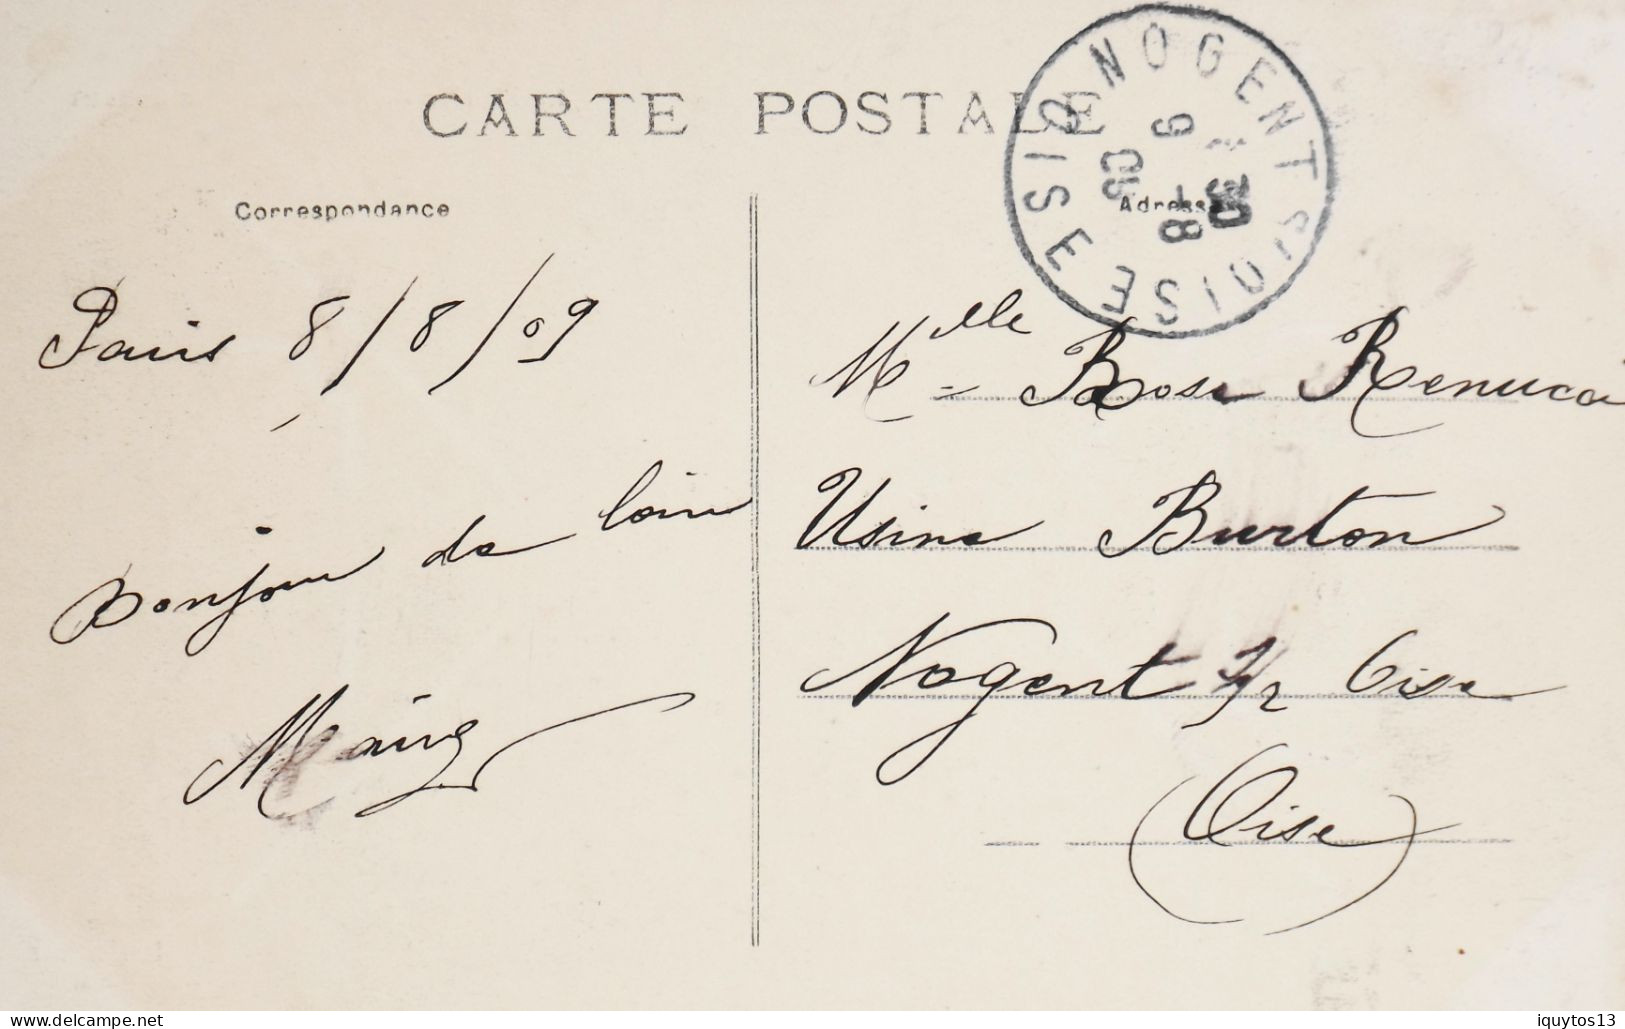 CARTE POSTALE
Correspondance
Paris 8/8/09
Bonjour de loin
Adresse
NOGENT S/OISE
OISE
9 - 8
09
Mlle Rose Renucci
Usine Burton
Nogent s/r Oise
(Oise)
delcampe.net
iquytos13